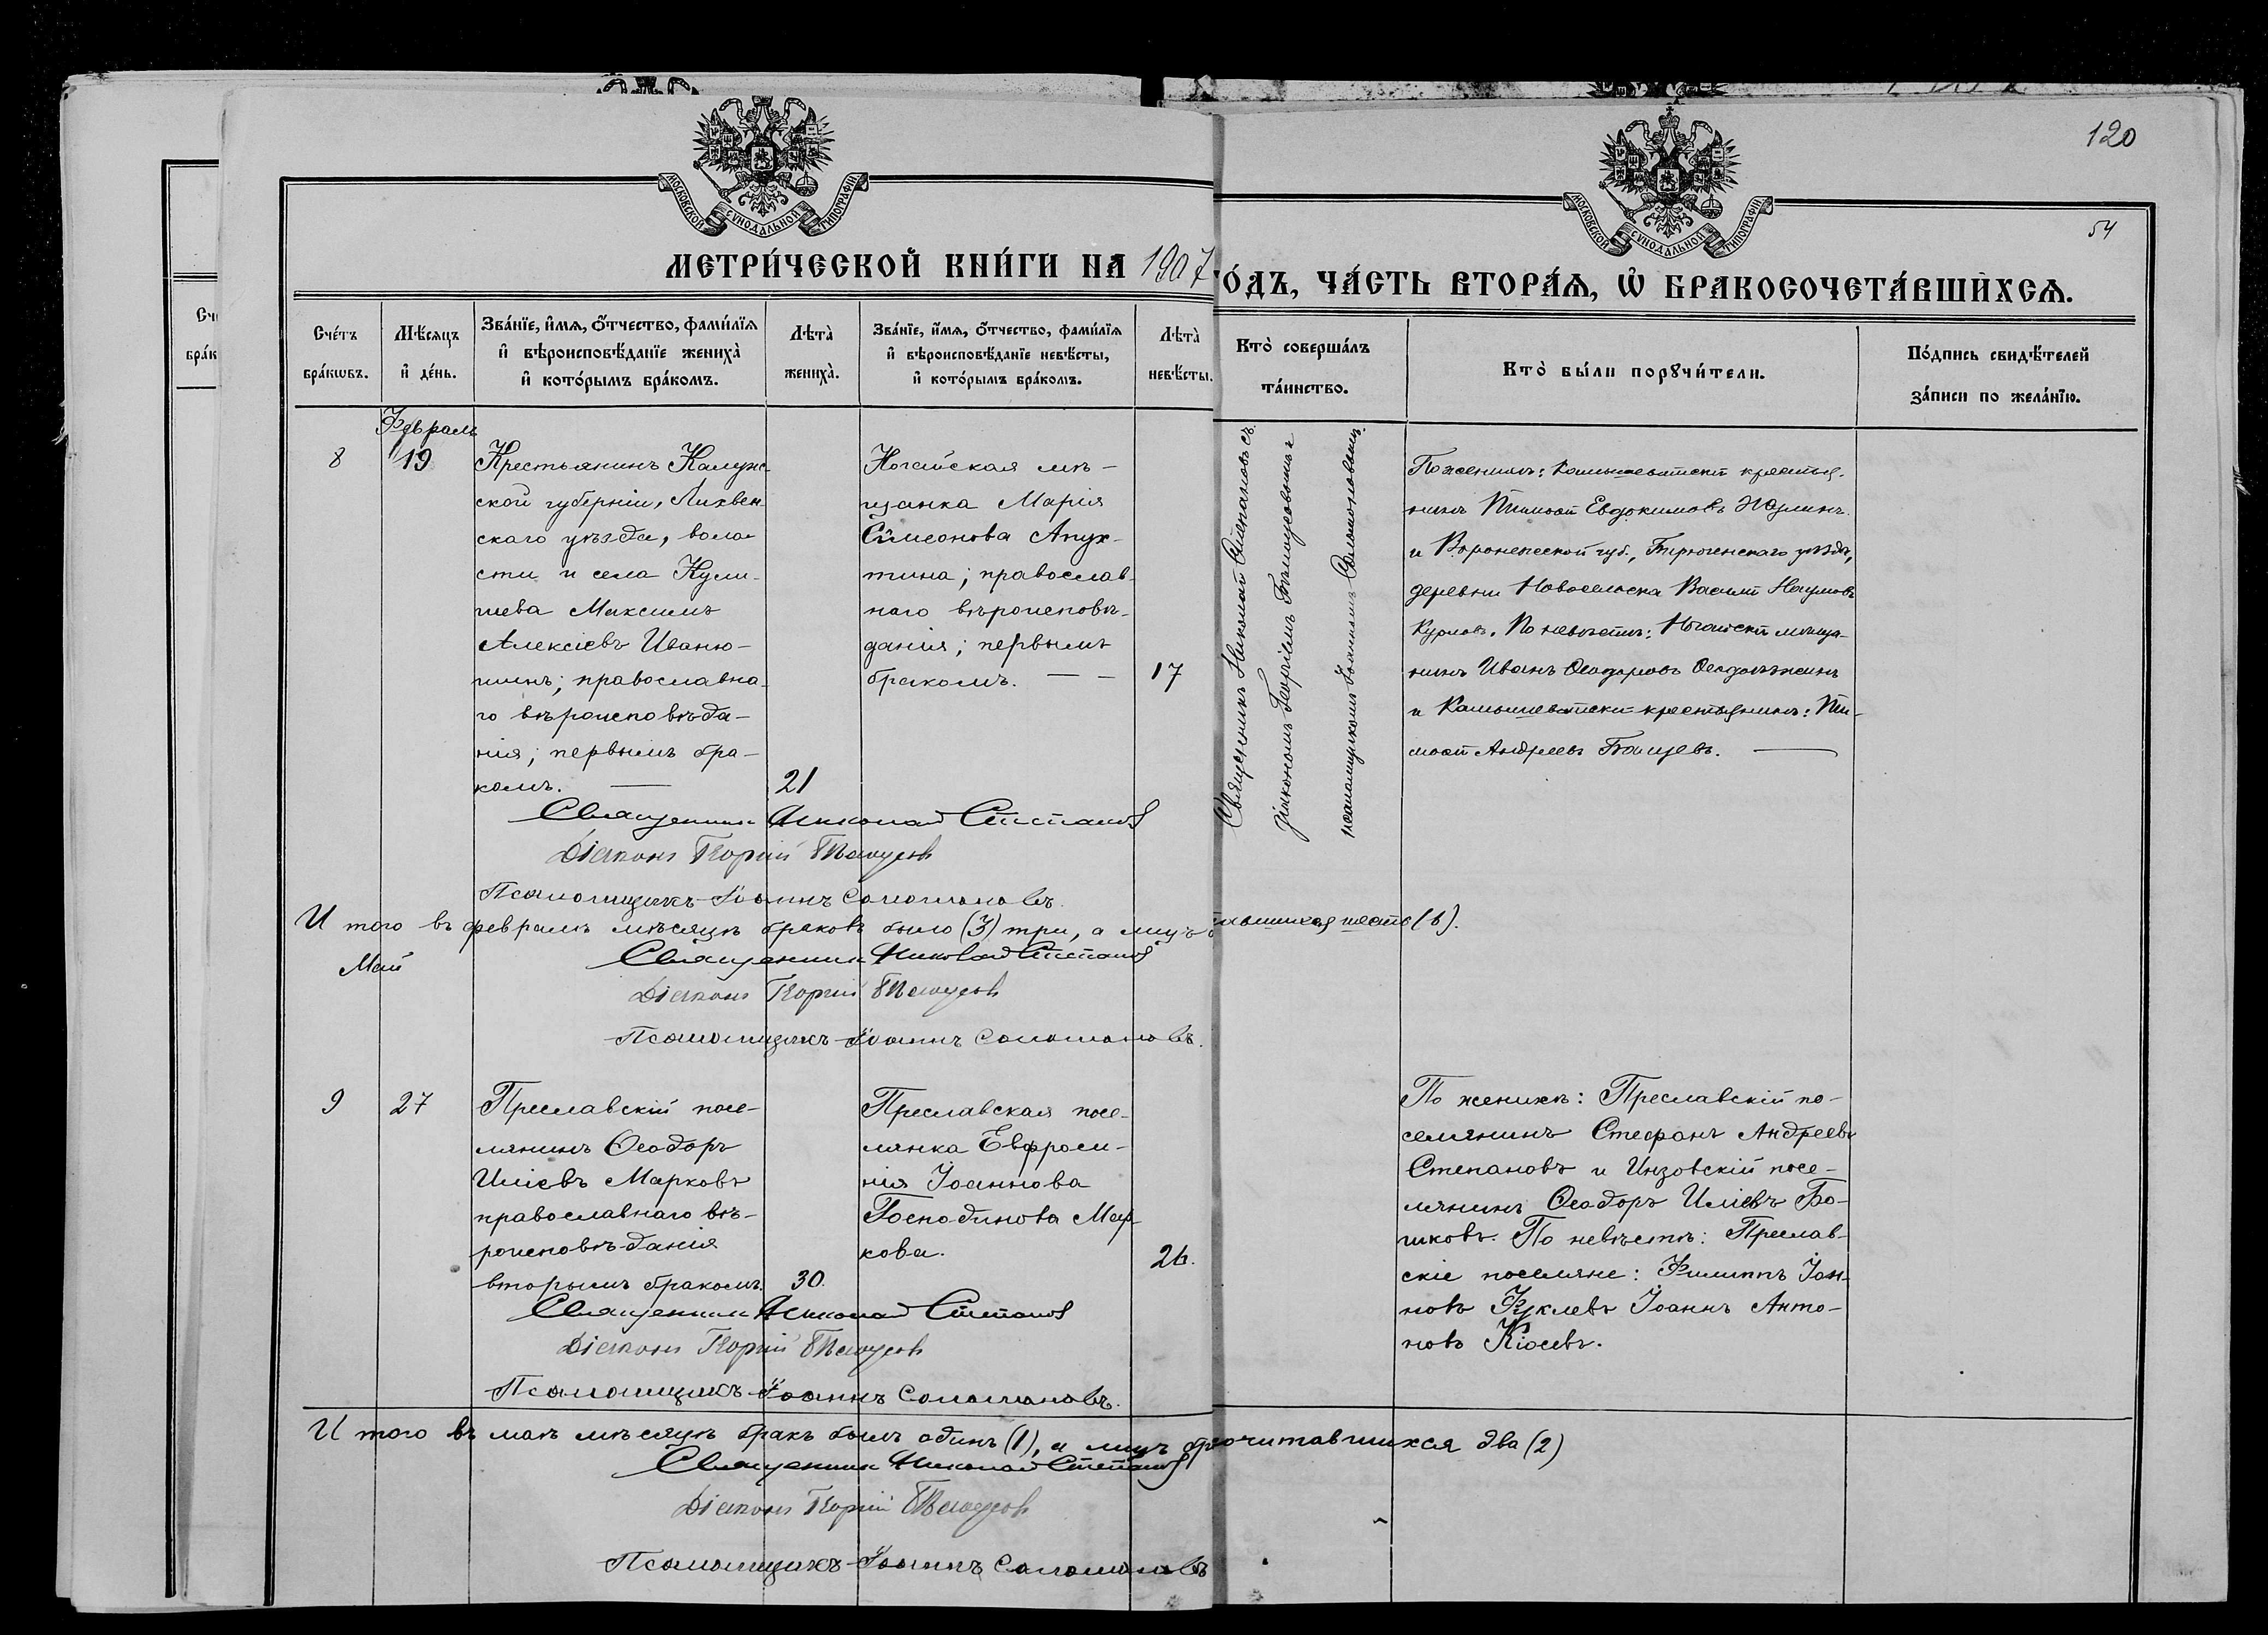 120
54
МОСКОВСКОЙ СѴНОДАЛЬНОЙ ТИПОГРАФІИ
МОСКОВСКОЙ СѴНОДАЛЬНОЙ ТИПОГРАФІИ
МЕТРИ́ЧЕСКОЙ КНИ́ГИ НА 1907
ГО́ДЪ, ЧА́СТЬ ВТОРА́Ѧ, Ѿ БРАКОСОЧЕТА́ВШИХСѦ.
Сче́тъ бра́кѡвъ.
Мѣ́сѧцъ и҆ де́нь.
Зва́нїе, и҆́мѧ, ѻ҆́тчество, фами́лїѧ
и҆ вѣроисповѣ́данїе жениха̀
и҆ кото́рымъ бра́комъ.
Лѣта̀ жениха̀.
Зва́нїе, и҆́мѧ, ѻ҆́тчество, фами́лїѧ
и҆ вѣроисповѣ́данїе невѣ́сты,
и҆ кото́рымъ бра́комъ.
Лѣта̀ невѣ́сты.
Кто̀ соверша́лъ
та́инство.
Кто̀ бы́ли порꙋчи́тели.
По́дпись свидѣ́телей
за́писи по жела́нїю.
Февраль
8
19
Крестьянинъ Калуж-
ской губерніи, Лихвен-
скаго уѣзда, воло-
сти и села Кули-
шева Максимъ
Алексіевъ Иваню-
шинъ; православна-
го вѣроисповѣда-
нія; первымъ бра-
комъ.
21
Ногайская мѣ-
щанка Марія
Сѵмеонова Апух-
тина; православ-
наго вѣроисповѣ-
данія; первымъ
бракомъ.
17
Священникъ Николай Степановъ съ
діакономъ Георгіемъ Бѣлоусовымъ и
псаломщикомъ Іоанномъ Соломоновымъ
По женихѣ: Камышеватскій крестья-
нинъ Тимоѳей Евдокимовъ
и Воронежской губ., Бирюченскаго уѣзда,
деревни Новоселовка Василій Наумовъ
Курловъ. По невѣстѣ: Ногайскій мѣща-
нинъ Иванъ Ѳеодоровъ
и Камышеватскій крестьянинъ: Ти-
моѳей Андреевъ
Священникъ Николай Степановъ
Діаконъ Георгій Бѣлоусовъ
Псаломщикъ Іоаннъ Соломоновъ.
Итого въ февралѣ мѣсяцѣ браковъ было (3) три, а лицъ шесть (6).
Май
Священникъ Николай Степановъ
Діаконъ Георгій Бѣлоусовъ
Псаломщикъ Іоаннъ Соломоновъ.
9
27
Преславскій посе-
лянинъ Ѳеодоръ
Иліевъ Марковъ
православнаго вѣ-
роисповѣданія
вторымъ бракомъ.
30.
Преславская посе-
лянка Евфроси-
нія Іоаннова
Господинова Мар-
кова.
26.
По женихѣ: Преславскій по-
селянинъ Стефанъ Андреевъ
Степановъ и Инзовскій посе-
лянинъ Ѳеодоръ Иліевъ Бо-
шковъ. По невѣстѣ: Преслав-
скіе поселяне: Филиппъ Іоан-
новъ Куклевъ Іоаннъ Анто-
новъ Кіосевъ.
Священникъ Николай Степановъ
Діаконъ Георгій Бѣлоусовъ
Псаломщикъ Іоаннъ Соломоновъ.
Итого въ маѣ мѣсяцѣ бракъ былъ одинъ (1), а лицъ два (2)
Священникъ Николай Степановъ
Діаконъ Георгій Бѣлоусовъ
Псаломщикъ Іоаннъ Соломоновъ